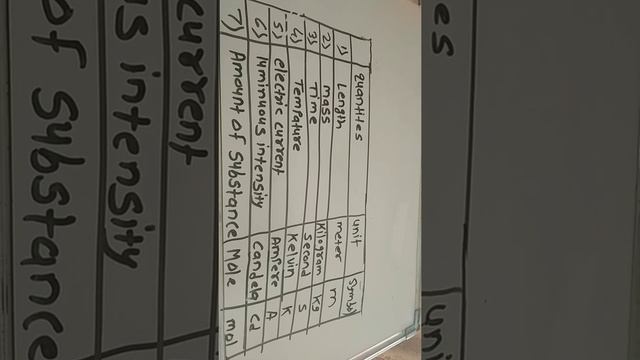 quantites unit Symbol
1) Length meter m
2) mass Kilogram Kg
3) Time Second S
4) Tempature Kelvin K
5) electric current Ampere A
6) luminous intensity Candela Cd
7) Amount of Substance Mole mol